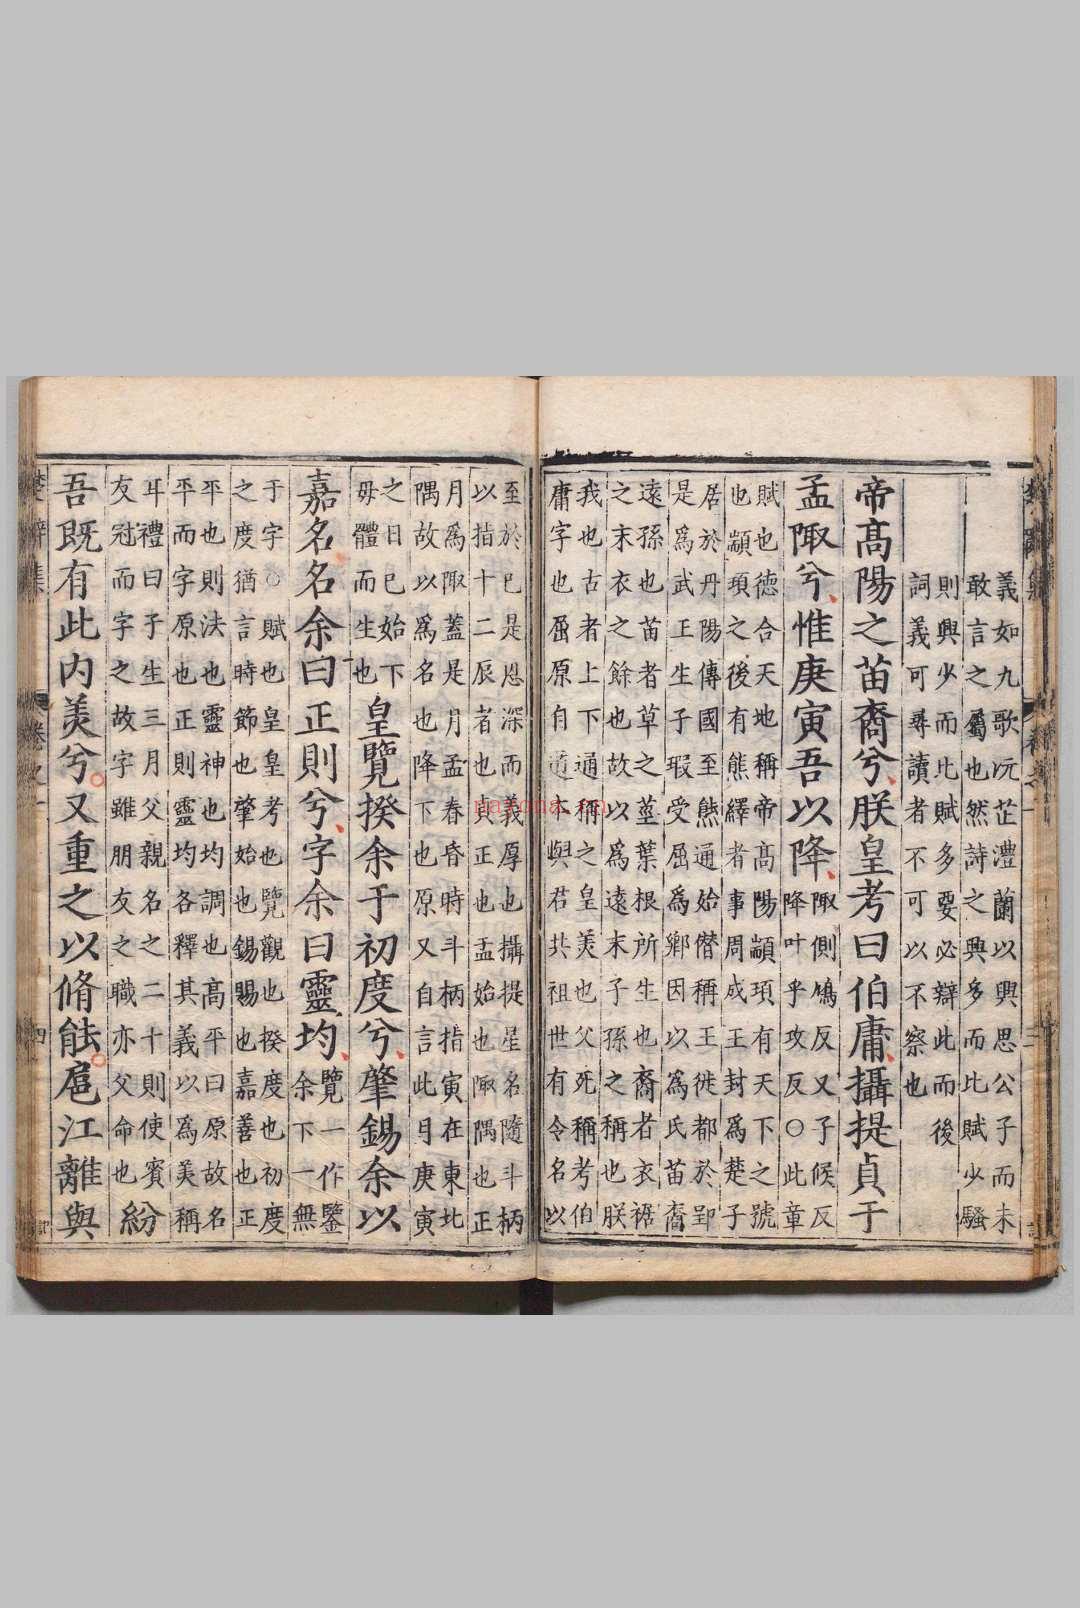 義如九歌沅芷澧蘭以興思公子而未
敢言之屬也然詩之興多而比賦少騷
則興少而比賦多要必辯此而後
詞義可尋讀者不可以不察也
帝高陽之苗裔兮朕皇考曰伯庸攝提貞于
孟陬兮惟庚寅吾以降
陬側鳩反又子候反
降叶乎攻反○此章
賦也德合天地稱帝高陽顓頊有天下之號
也顓頊之後有熊繹者事周成王封爲楚子
居於丹陽傳國至熊通始僭稱王徙都於郢
是爲武王生子瑕受屈爲鄉因以爲氏苗裔
遠孫也苗者草之莖葉根所生也裔者衣裾
之末衣之餘也故以爲遠末子孫之稱也朕
我也古者上下通稱之皇美也父死稱考伯
庸字也屈原自道本與君共祖世有令名以
至於已是恩深而義厚也攝提星名隨斗柄
以指十二辰者也貞正也孟始也陬隅也正
月爲陬蓋是月孟春昏時斗柄指寅在東北
隅故以爲名也降下也原又自言此月庚寅
之日已始下
毋體而生也
皇覽揆余于初度兮肇錫余以
嘉名名余曰正則兮字余曰靈均
覽一作鑒
余下一無
于字○賦也皇皇考也覽觀也揆度也初度
之度猶言時節也肇始也錫賜也嘉善也正
平也則法也靈神也均調也高平曰原故名
平而字原也正則靈均各釋其義以爲美稱
耳禮曰子生三月父親名之二十則使賓
友冠而字之故字雖朋友之職亦父命也
紛
吾既有此内美兮又重之以脩能扈江離與
楚辭集 卷之一 四
nayona.cn